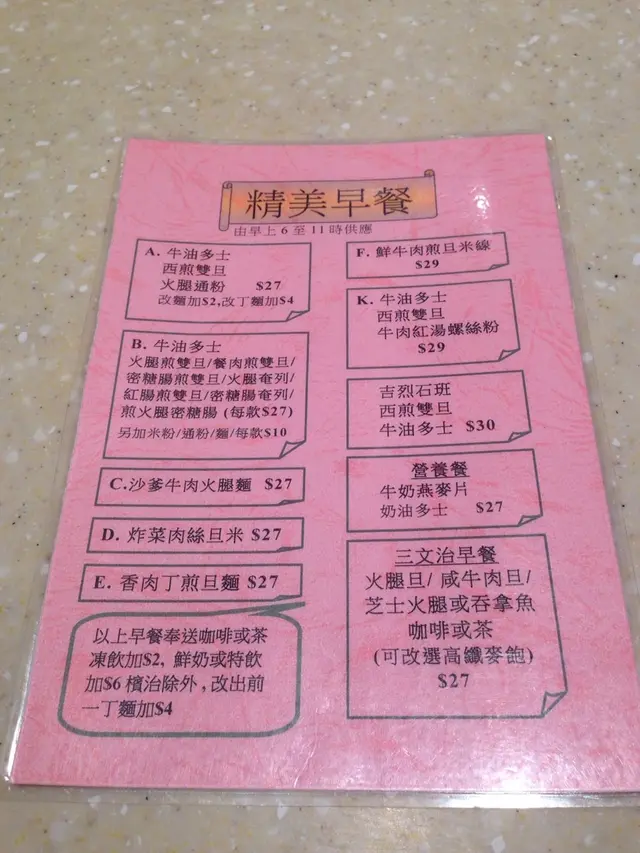 精美早餐
由早上6至11時供應
A. 牛油多士
西煎雙旦
火腿通粉 $27
改麵加$2,改丁麵加$4
B. 牛油多士
火腿煎雙旦/餐肉煎雙旦/
密糖腸煎雙旦/火腿奄列/
紅腸煎雙旦/密糖腸奄列/
煎火腿密糖腸 (每款$27)
另加米粉/通粉/麵/每款$10
C.沙爹牛肉火腿麵 $27
D. 炸菜肉絲旦米 $27
E. 香肉丁煎旦麵 $27
以上早餐奉送咖啡或茶
凍飲加$2, 鮮奶或特飲
加$6 檳治除外,改出前
一丁麵加$4
F. 鮮牛肉煎旦米線
$29
K. 牛油多士
西煎雙旦
牛肉紅湯螺絲粉
$29
吉烈石班
西煎雙旦
牛油多士 $30
營養餐
牛奶燕麥片
奶油多士 $27
三文治早餐
火腿旦/ 咸牛肉旦/
芝士火腿或吞拿魚
咖啡或茶
(可改選高纖麥飽)
$27